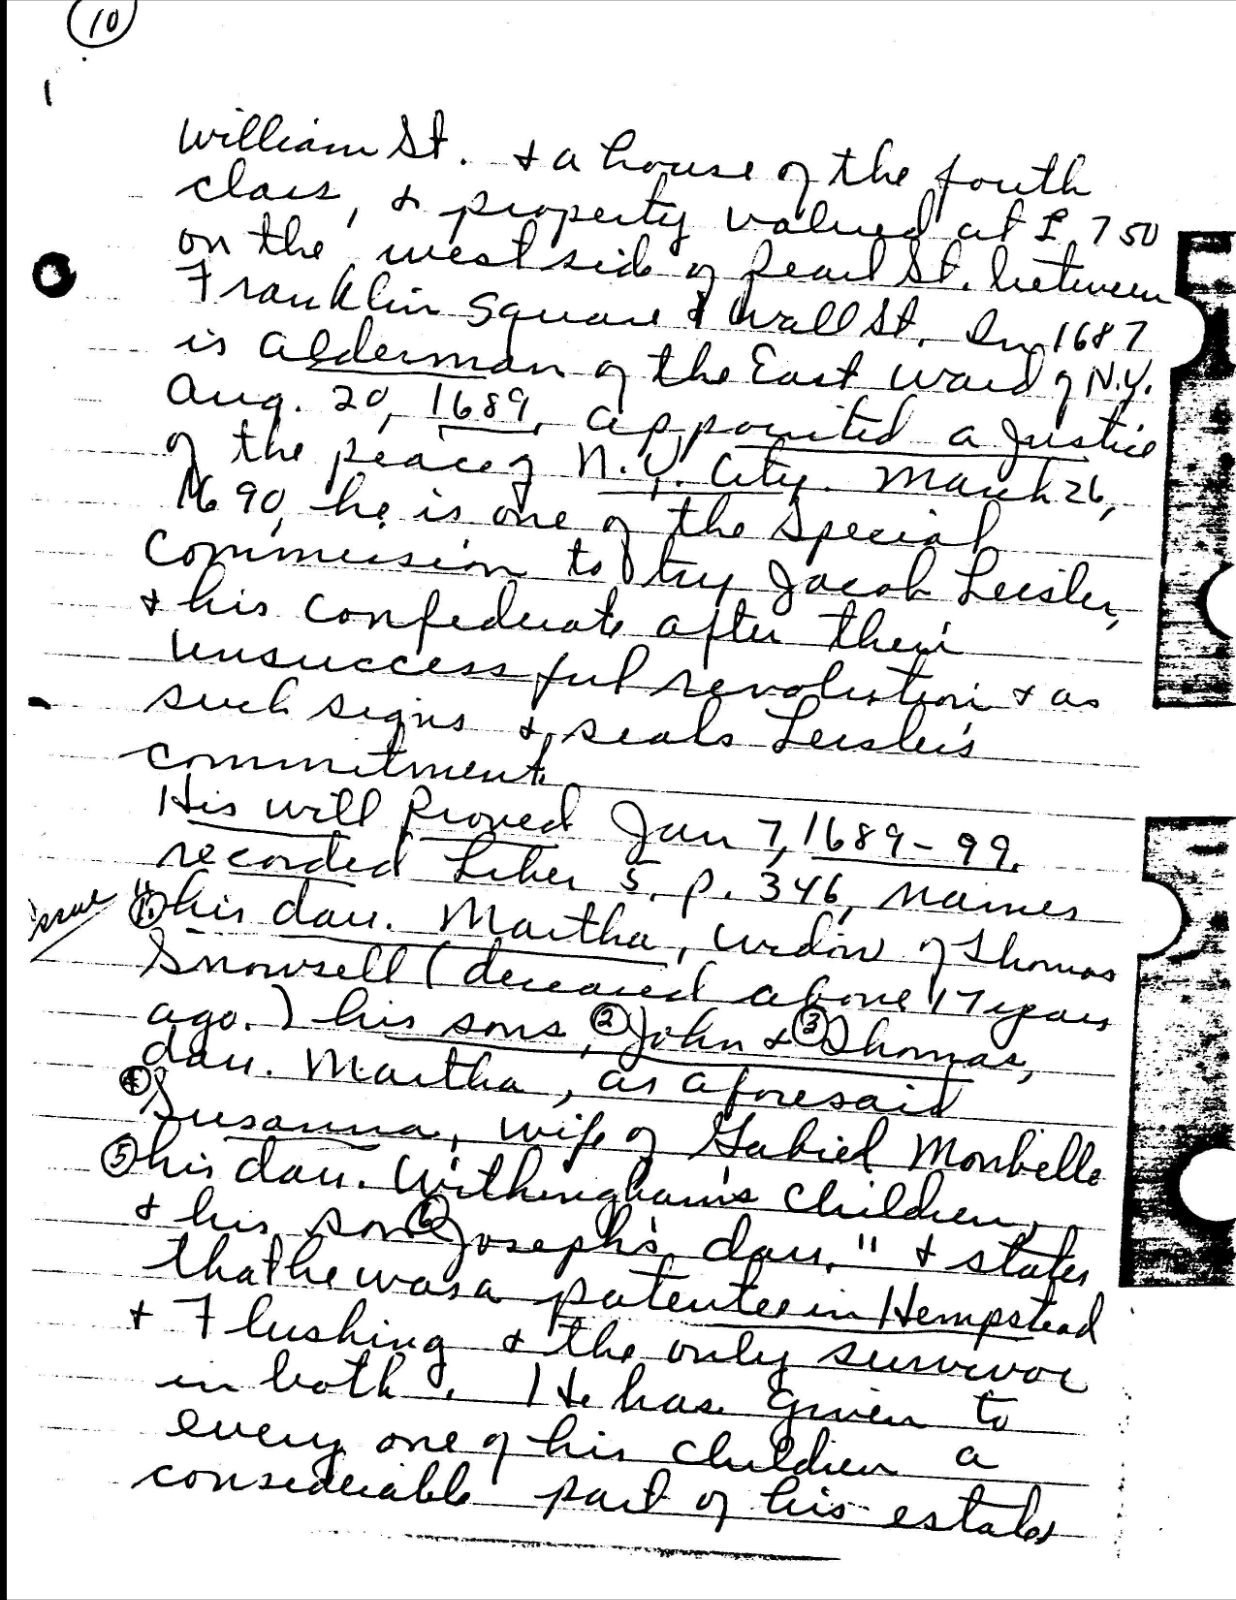 10
William St. & a house of the fouth
class, & property valued at £ 750
on the west side of Pearl St. between
Franklin Square & Wall St. In 1687
is alderman of the East Ward of N.Y.
Aug. 20, 1689, appointed a Justice
of the peace of N.Y. City. March 26,
1690, he is one of the Special
Commission to try Jacob Leisler,
& his confederate after their
unsuccessful revolution & as
such signs & seals Leisler's
commitment.
His will proved Jan 7, 1689-99.
recorded Liber 5. p. 346, names
issue "1. his dau. Martha, widow of Thomas
Snowsell (deceased above 17 years
ago.) his sons, 2 John & 3 Thomas,
dau. Martha, as aforesaid
4 Susanna, wife of Gabriel Monbelle
5 his dau. Withingham's children,
& his son 6 Joseph's dau." & states
that he was a patentee in Hempstead
& Flushing & the only survivor
in both. He has given to
every one of his children a
considerable part of his estates